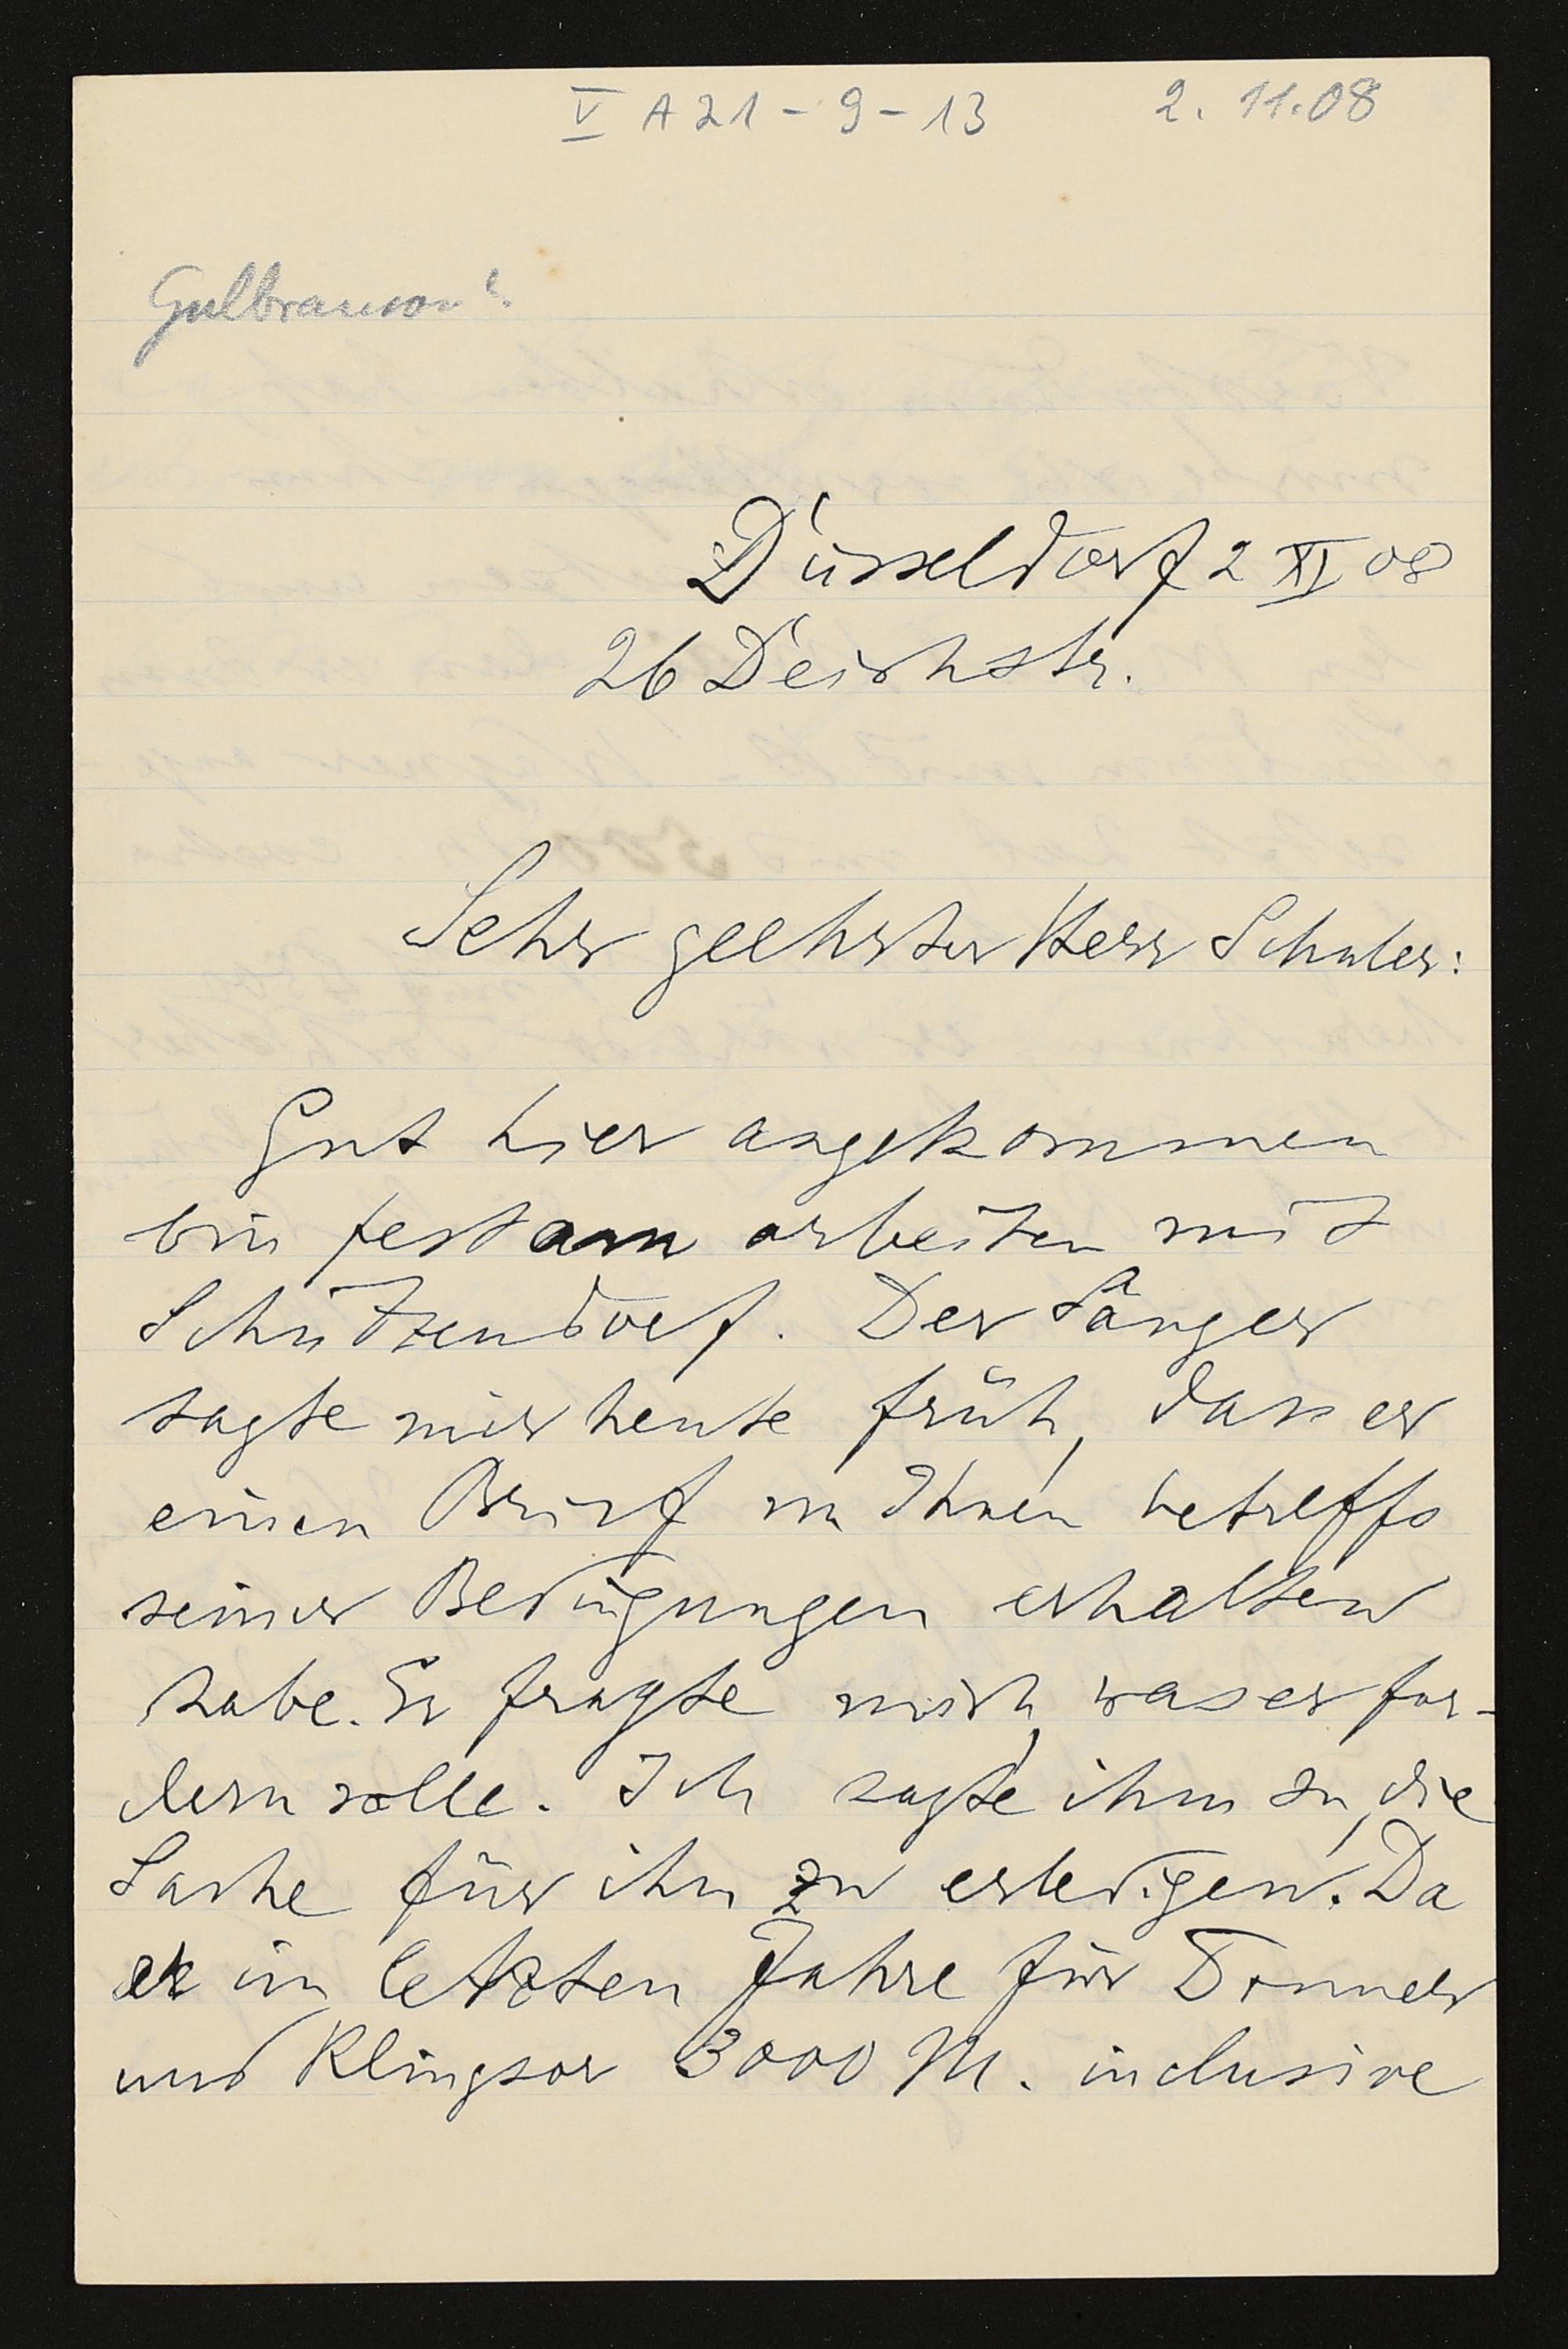 V A 21 - 9 - 13 2. 11. 08
Gulbranson?
Düsseldorf 2 XI 08
26 Deichstr.
Sehr geehrter Herr Schuler:
Gut hier angekommen
bin fest am arbeiten mit
Schützendorf. Der Sänger
sagte mir heute früh, dass er
einen Brief v. Ihnen betreffs
seiner Bedingungen erhalten
habe. Er fragte mich, was er for-
dern solle. Ich sagte ihm zu, die
Sache für ihn zu erledigen. Da
er im letzten Jahre für Donner
und Klingsor 3000 M. inclusive